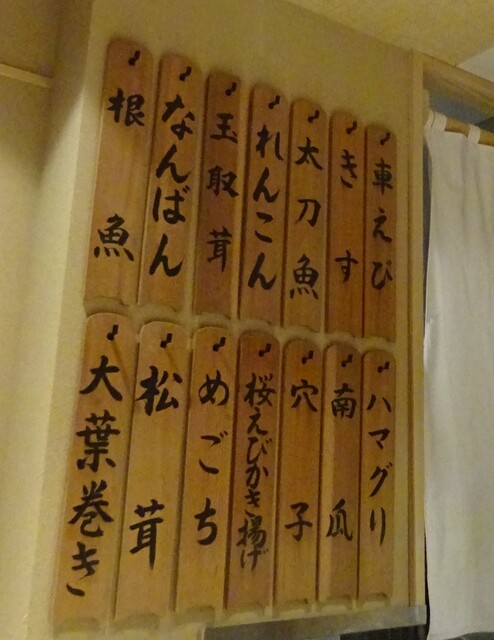 車えび
きす
太刀魚
れんこん
玉取茸
なんばん
根魚
ハマグリ
南瓜
穴子
桜えびかき揚げ
めごち
松茸
大葉巻き